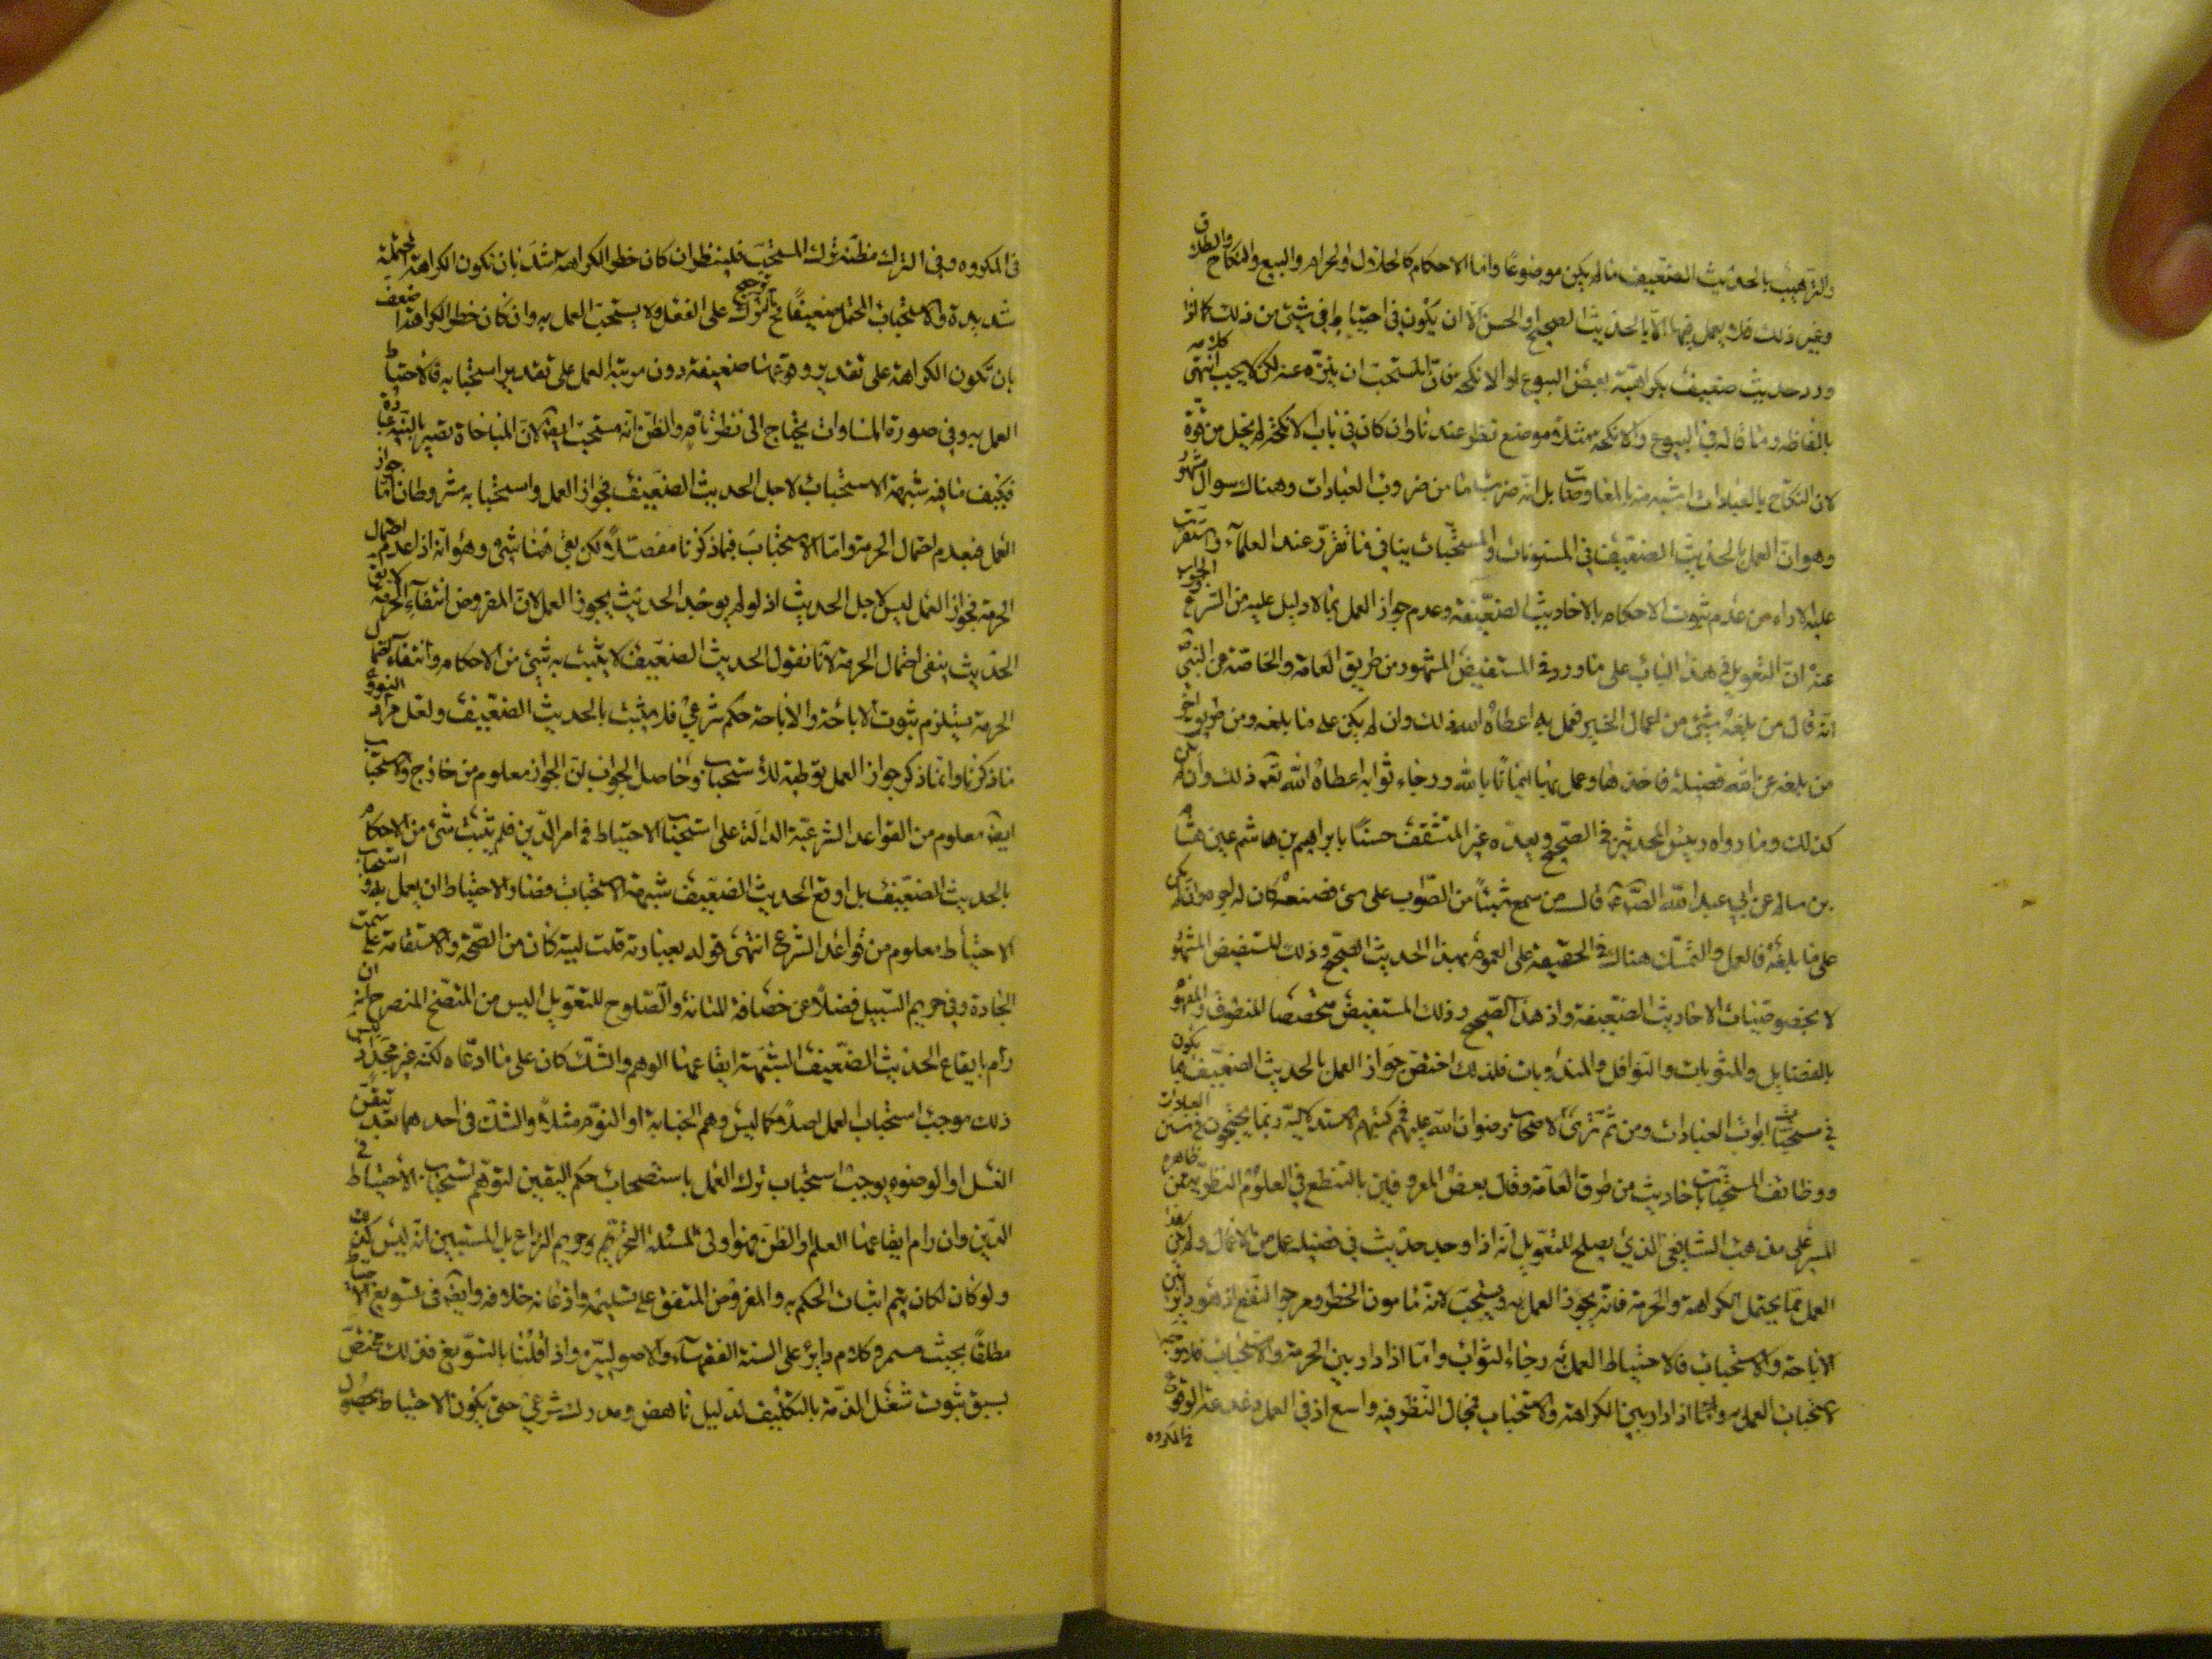 والترهيب بالحديث الضعيف ما لم يكن موضوعا واما الاحكام كالحلال والحرام والبيع والنكاح والطلاق
وغير ذلك فلا يعمل فيها الا بالحديث الصحيح او الحسن الا ان يكون في احتياط في شيئ من ذلك كما اذا
ورد حديث ضعيف بكراهية بعض البيوع او الانكحة فان المستحب ان يتنزه عنه لكن لا يجب انتهى كلامه
بالفاظه وما قاله في البيوع والانكحة مثلا موضع نظر عندنا وان كان في باب الانكحة لم يخل من قوة
لان النكاح بالعبادات اشبه منه بالمعاوضات بل انه ضرب ما من ضروب العبادات وهناك سوال مشهور
وهو ان العمل بالحديث الضعيف في المسنونات والمستحبات ينافي ما تقرر عند العلمآء واستقرت
عليه الاراء من عدم ثبوت الاحكام بالاحاديث الضعيفة وعدم جواز العمل بما لا دليل عليه من الشرع والجواب
عنه ان التعويل في هذا الباب على ما ورد في المستفيض المشهور من طريق العامة والخاصة عن النبي ص
انه قال من بلغه شيئ من اعمال الخير فعمل به اعطاه الله ذلك وان لم يكن على ما بلغه ومن طريق اخر
من بلغه عن الله فضيلة فاخذها وعمل بها ايمانا بالله ورجاء ثوابه اعطاه الله تعه ذلك وان لم يكن
كذلك وما رواه رييس المحدثين في الصحيح ويعده غير المتثقف حسنا بابراهيم بن هاشم عن هشام
بن سالم عن ابي عبد الله الصادق قال من سمع شيئا من الثواب على شئ فصنعه كان له اجره وان لم يكن
على ما بلغه فالعمل والتمسك هناك في الحقيقة على العموم بهذا الحديث الصحيح وذلك المستفيض المشهور
لا بخصوصيات الاحاديث الضعيفة واذ هذا الصحيح وذلك المستفيض مخصصا المنطوق والمفهوم
بالفضايل والمثوبات والنوافل والمندوبات فلذلك اختص جواز العمل بالحديث الضعيف بما يكون
في مستحبات ابواب العبادات ومن ثم ترى الاصحاب رضوان الله عليهم في كتبهم الاستدلالية ربما يحتجون في سنن العبادات
ووظائف المستحبات باحاديث من طرق العامة وقال بعض المعروفين بالتنطع في العلوم النظرية من ظاهره
المسير على مذهب الشافعي الذي يصلح للتعويل انه اذا وجد حديث في فضيلة عمل من الاعمال ولم يكن هذا
العمل مما يحتمل الكراهة والحرمة فانه يجوز العمل به ويستحب لانه مامون الخطر ومرجو النفع اذ هو داير بين
الاباحة والاستحباب فالاحتياط العمل به رجاء الثواب واما اذا دار بين الحرمة والاستحباب فلا وجه
لاستحباب العمل به واما اذا دار بين الكراهة والاستحباب فمجال النظر فيه واسع اذ في العمل دغدغة الوقوع
في المكروه
في المكروه وفي الترك مظنة ترك المستحب فلينظر ان كان خطر الكراهة اشد بان تكون الكراهة المحتملة
شديدة والاستحباب المحتمل ضعيفا فح يرجح الترك على الفعل ولا يستحب العمل به وان كان خطر الكراهة اضعف
بان تكون الكراهة على تقدير وقوعها ضعيفة دون مرتبة العمل على تقدير استحبابه فالاحتياط
العمل به وفي صورة المساوات يحتاج الى نظر تام والظن انه مستحب ايضا لان المباحاة تصير بالنية عبادة
فكيف ما فيه شبهة الاستحباب لاجل الحديث الضعيف فجواز العمل واستحبابه مشروطان اما جواز
العمل فبعدم احتمال الحرمة واما الاستحباب فبما ذكرنا مفصلا لكن بقي هنا شئ وهو انه اذا عدم احتمال
الحرمة فجواز العمل ليس لاجل الحديث اذ لو لم يوجد الحديث يجوز العمل لان المفروض انتفآء الحرمة لا يق
الحديث ينفي احتمال الحرمة لانا نقول الحديث الضعيف لا يثبت به شيئ من الاحكام وانتفاء احتمال
الحرمة يستلزم ثبوت الاباحة والاباحة حكم شرعي فلا يثبت بالحديث الضعيف ولعل مراد النووي
ما ذكرنا وانما ذكر جواز العمل توطية للاستحباب وحاصل الجواب ان الجواز معلوم من خارج والاستحباب
ايضا معلوم من القواعد الشرعية الدالة على استحباب الاحتياط في امر الدين فلم يثبت شئ من الاحكام
بالحديث الضعيف بل اوقع الحديث الضعيف شبهة الاستحباب فصار الاحتياط ان يعمل به واستحباب
الاحتياط معلوم من قواعد الشرع انتهى قوله بعبارته قلت ليته كان من الصحة والاستقامة على سمت
الجادة وفي حريم السبيل فضلا عن حصافة المتانة والصلوح للتعويل اليس من المتضح المنصرح انه ان
رام بايقاع الحديث الضعيف الشبهة ايقاعها الوهم والشك كان على ما ادعاه لكنه غير مجد اذ ليس
ذلك موجب استحباب العمل اصلا كما ليس وهم الجنابة او النوم مثلا والشك في احدهما بعد تيقن
الغسل او الوضوء يوجب استحباب ترك العمل باستصحاب حكم اليقين لتوهم استحباب الاحتياط في
الدين وان رام ايقاعها العلم او الظن فهو اول المسئلة التحريم وحريم النزاع بل المستبين انه ليس كذلك
ولو كان لكان يتم اثبات الحكم به والمفروض المتفق على تسليمه واذعانه خلافه وايضا في تسويغ الاحتياط
مطلقا بحث مسمر وكلام داير على السنة الفقهآء والاصوليين واذا قلنا بالتسويغ فذلك مختص
بسبق ثبوت شغل الذمة بالتكليف لدليل ناهض ومدرك شرعي حتى يكون الاحتياط بحصول